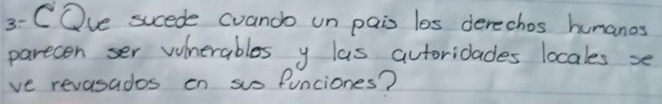 3-¿Que sucede cuando un pais los derechos humanos
parecen ser vulnerables y las autoridades locales se
ve revasados en sus funciones?